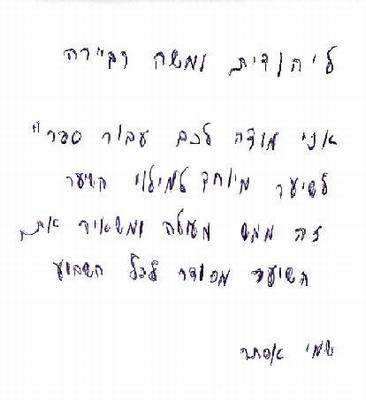 ליהודית ומשה רביירה
אני מודה לכם עבור ספריי
לשיער מיוחד למילוי השיער
זה ממש מעולה ומשאיר את
השיער מסודר לכל השבוע
שמי אסתר